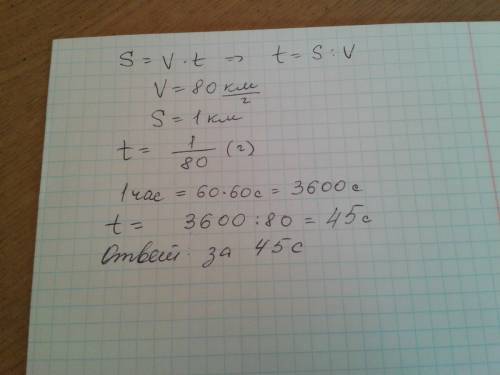 S = V · t => t = S : V
V = 80 км/ч
S = 1 км
t = 1/80 (ч)
1 час = 60·60с = 3600с
t = 3600 : 80 = 45с
Ответ. за 45с